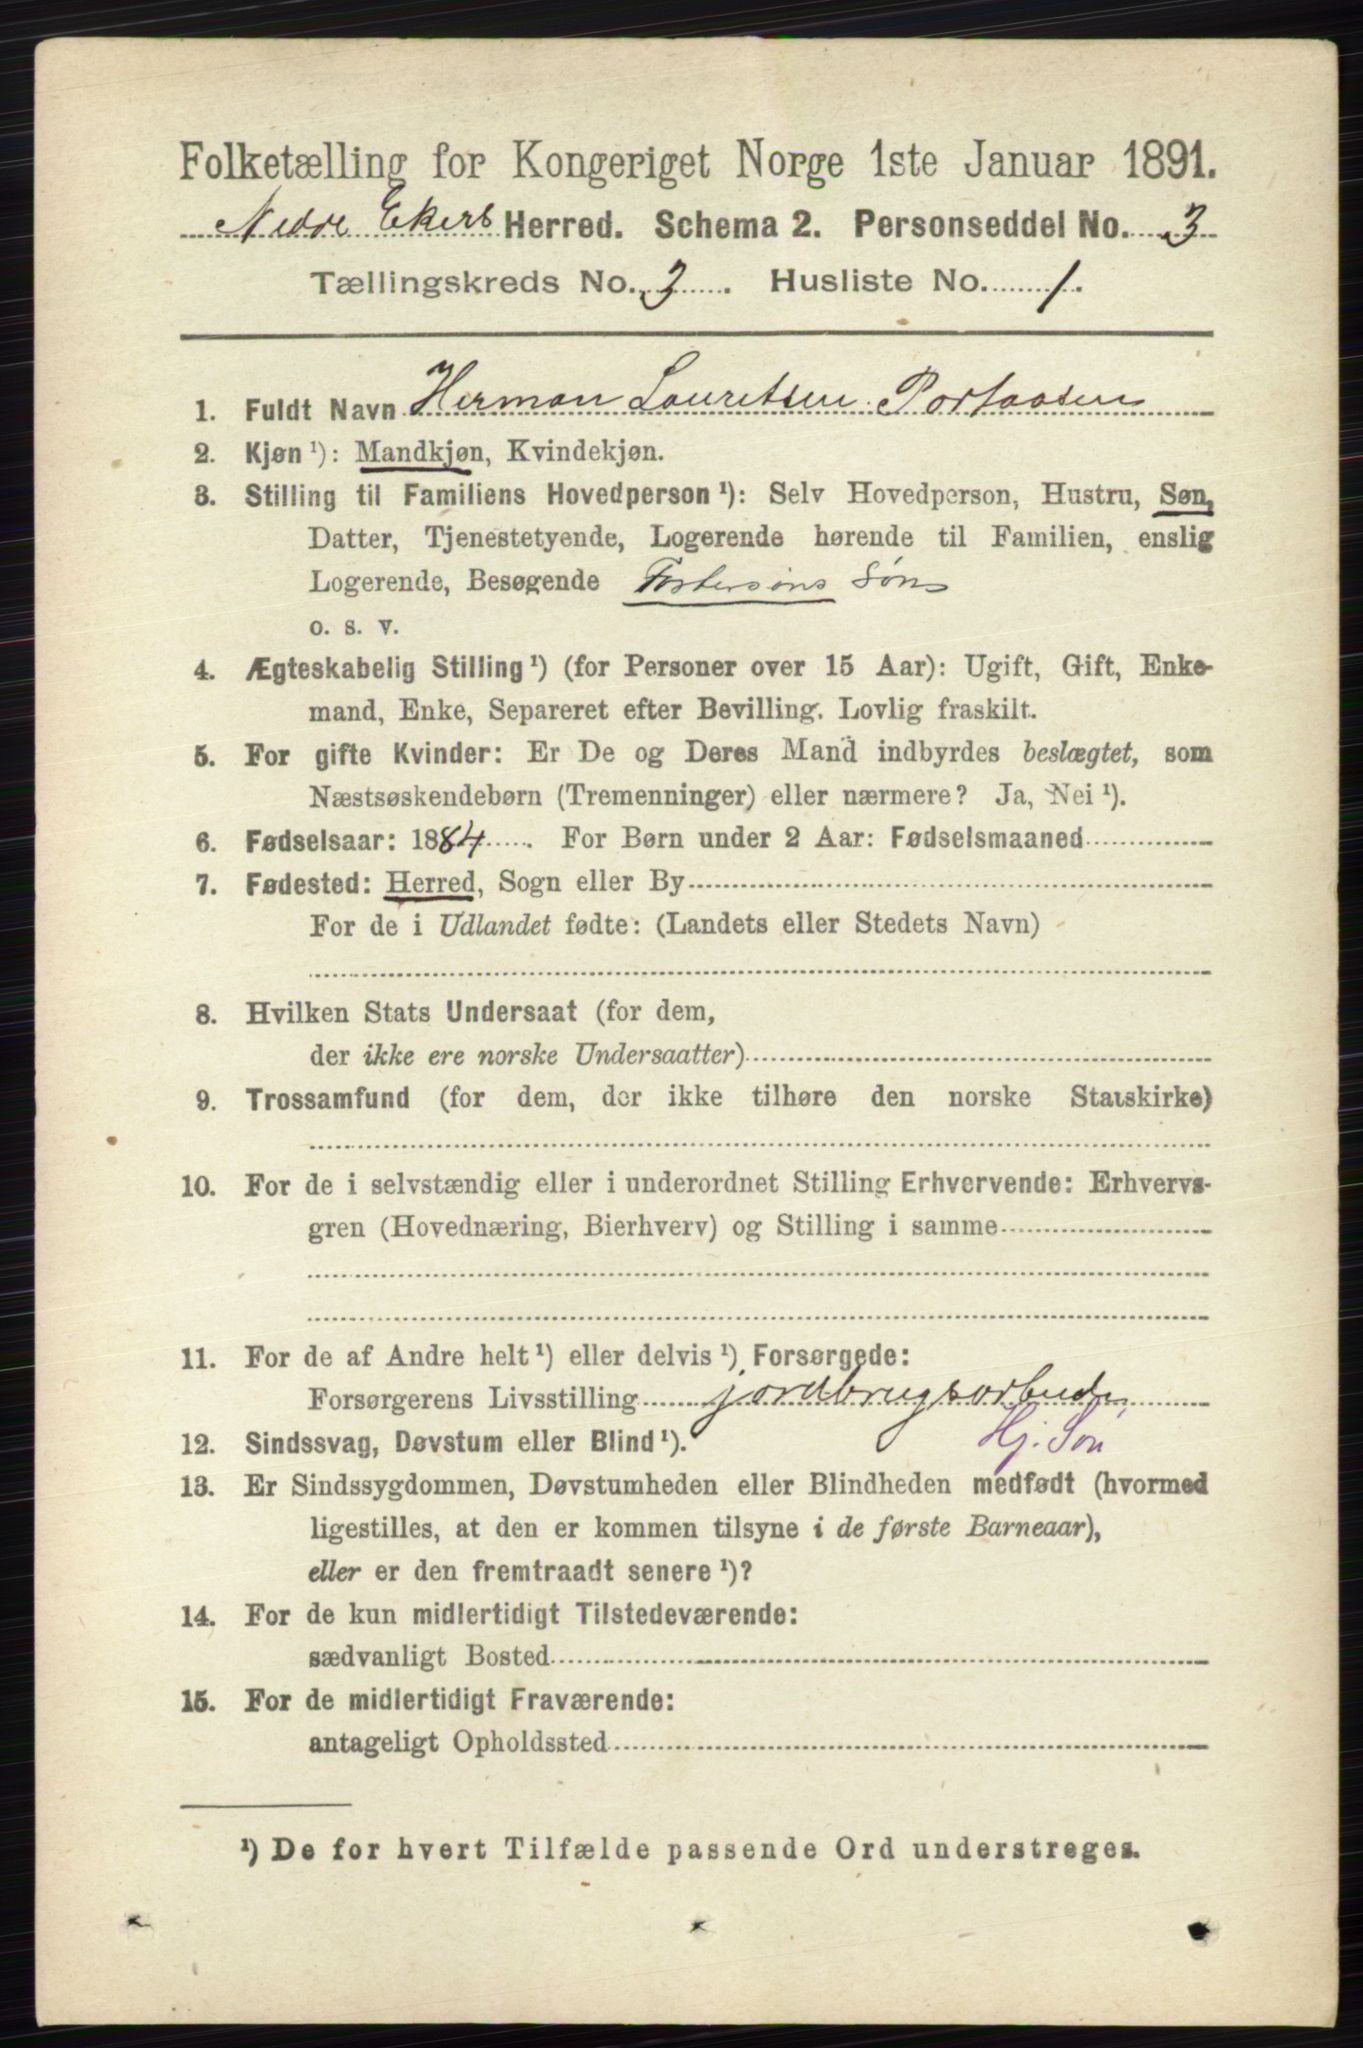 Folketælling for Kongeriget Norge 1ste Januar 1891.
Nedre Ekers Herred. Schema 2. Personseddel No. 3
Tællingskreds No. 3. Husliste No. 1.
1. Fuldt Navn Herman Lauretsen Portaasen
2. Kjøn ¹): Mandkjøn, Kvindekjøn.
3. Stilling til Familiens Hovedperson ¹): Selv Hovedperson, Hustru, Søn,
Datter, Tjenestetyende, Logerende hørende til Familien, enslig
Logerende, Besøgende Fostersøns Søn
o. s. v.
4. Ægteskabelig Stilling ¹) (for Personer over 15 Aar): Ugift, Gift, Enke-
mand, Enke, Separeret efter Bevilling. Lovlig fraskilt.
5. For gifte Kvinder: Er De og Deres Mand indbyrdes beslægtet, som
Næstsøskendebørn (Tremenninger) eller nærmere? Ja, Nei ¹).
6. Fødselsaar: 1884. For Børn under 2 Aar: Fødselsmaaned
7. Fødested: Herred, Sogn eller By
For de i Udlandet fødte: (Landets eller Stedets Navn)
8. Hvilken Stats Undersaat (for dem,
der ikke ere norske Undersaatter)
9. Trossamfund (for dem, der ikke tilhøre den norske Statskirke)
10. For de i selvstændig eller i underordnet Stilling Erhvervende: Erhvervs-
gren (Hovednæring, Bierhverv) og Stilling i samme
11. For de af Andre helt ¹) eller delvis ¹) Forsørgede:
Forsørgerens Livsstilling jordbrugsarbeide
12. Sindssvag, Døvstum eller Blind ¹). Hj. Søn
13. Er Sindssygdommen, Døvstumheden eller Blindheden medfødt (hvormed
ligestilles, at den er kommen tilsyne i de første Barneaar),
eller er den fremtraadt senere ¹)?
14. For de kun midlertidigt Tilstedeværende:
sædvanligt Bosted
15. For de midlertidigt Fraværende:
antageligt Opholdssted
¹) De for hvert Tilfælde passende Ord understreges.